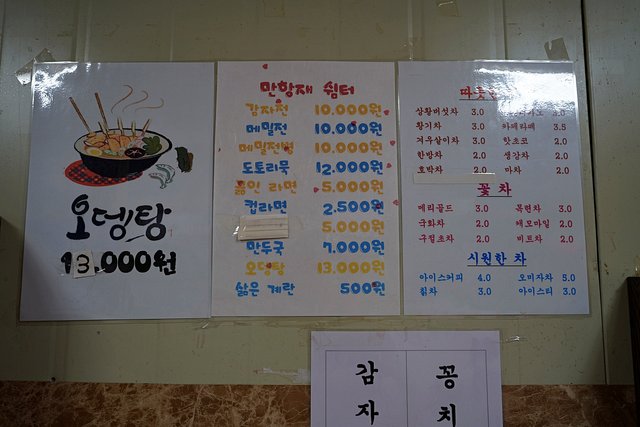 오뎅탕
13,000원
만항재 쉼터
감자전 10,000원
메밀전 10,000원
메밀전병 10,000원
도토리묵 12,000원
끓인 라면 5,000원
컵라면 2,500원
5,000원
만두국 7,000원
오뎅탕 13,000원
삶은 계란 500원
상황버섯차 3.0
황기차 3.0 카페라떼 3.5
겨우살이차 3.0 핫초코 2.0
한방차 2.0 생강차 2.0
호박차 2.0 마차 2.0
꽃 차
메리골드 3.0 목련차 3.0
국화차 2.0 캐모마일 2.0
구절초차 2.0 비트차 2.0
시원한 차
아이스커피 4.0 오미자차 5.0
칡차 3.0 아이스티 3.0
감자
꽁치